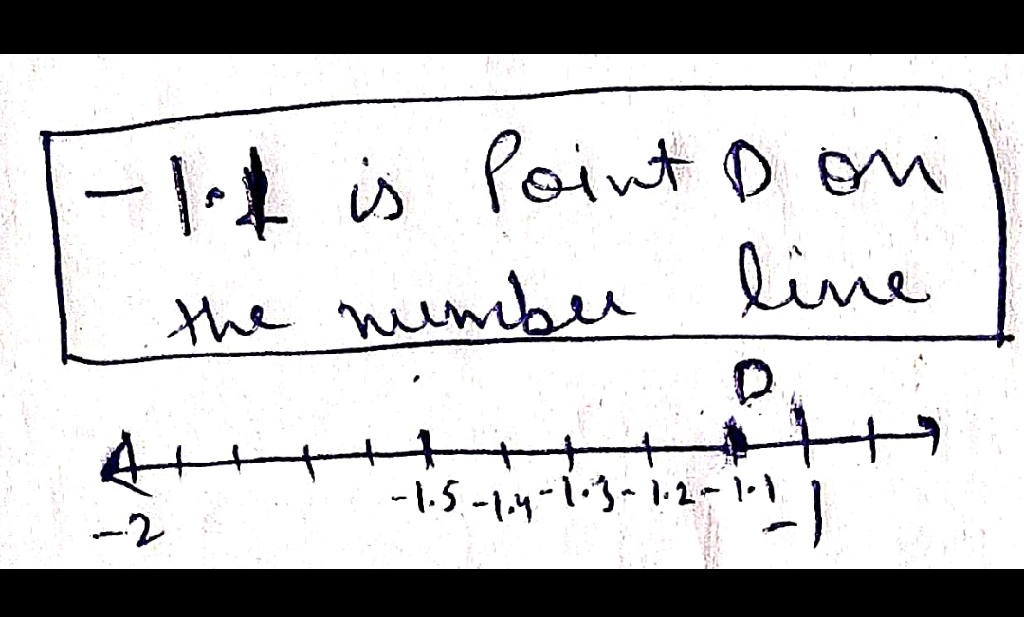 -1.1 is Point D on
the number line
D
-1.5 -1.4 -1.3 -1.2 -1.1
-2 -1